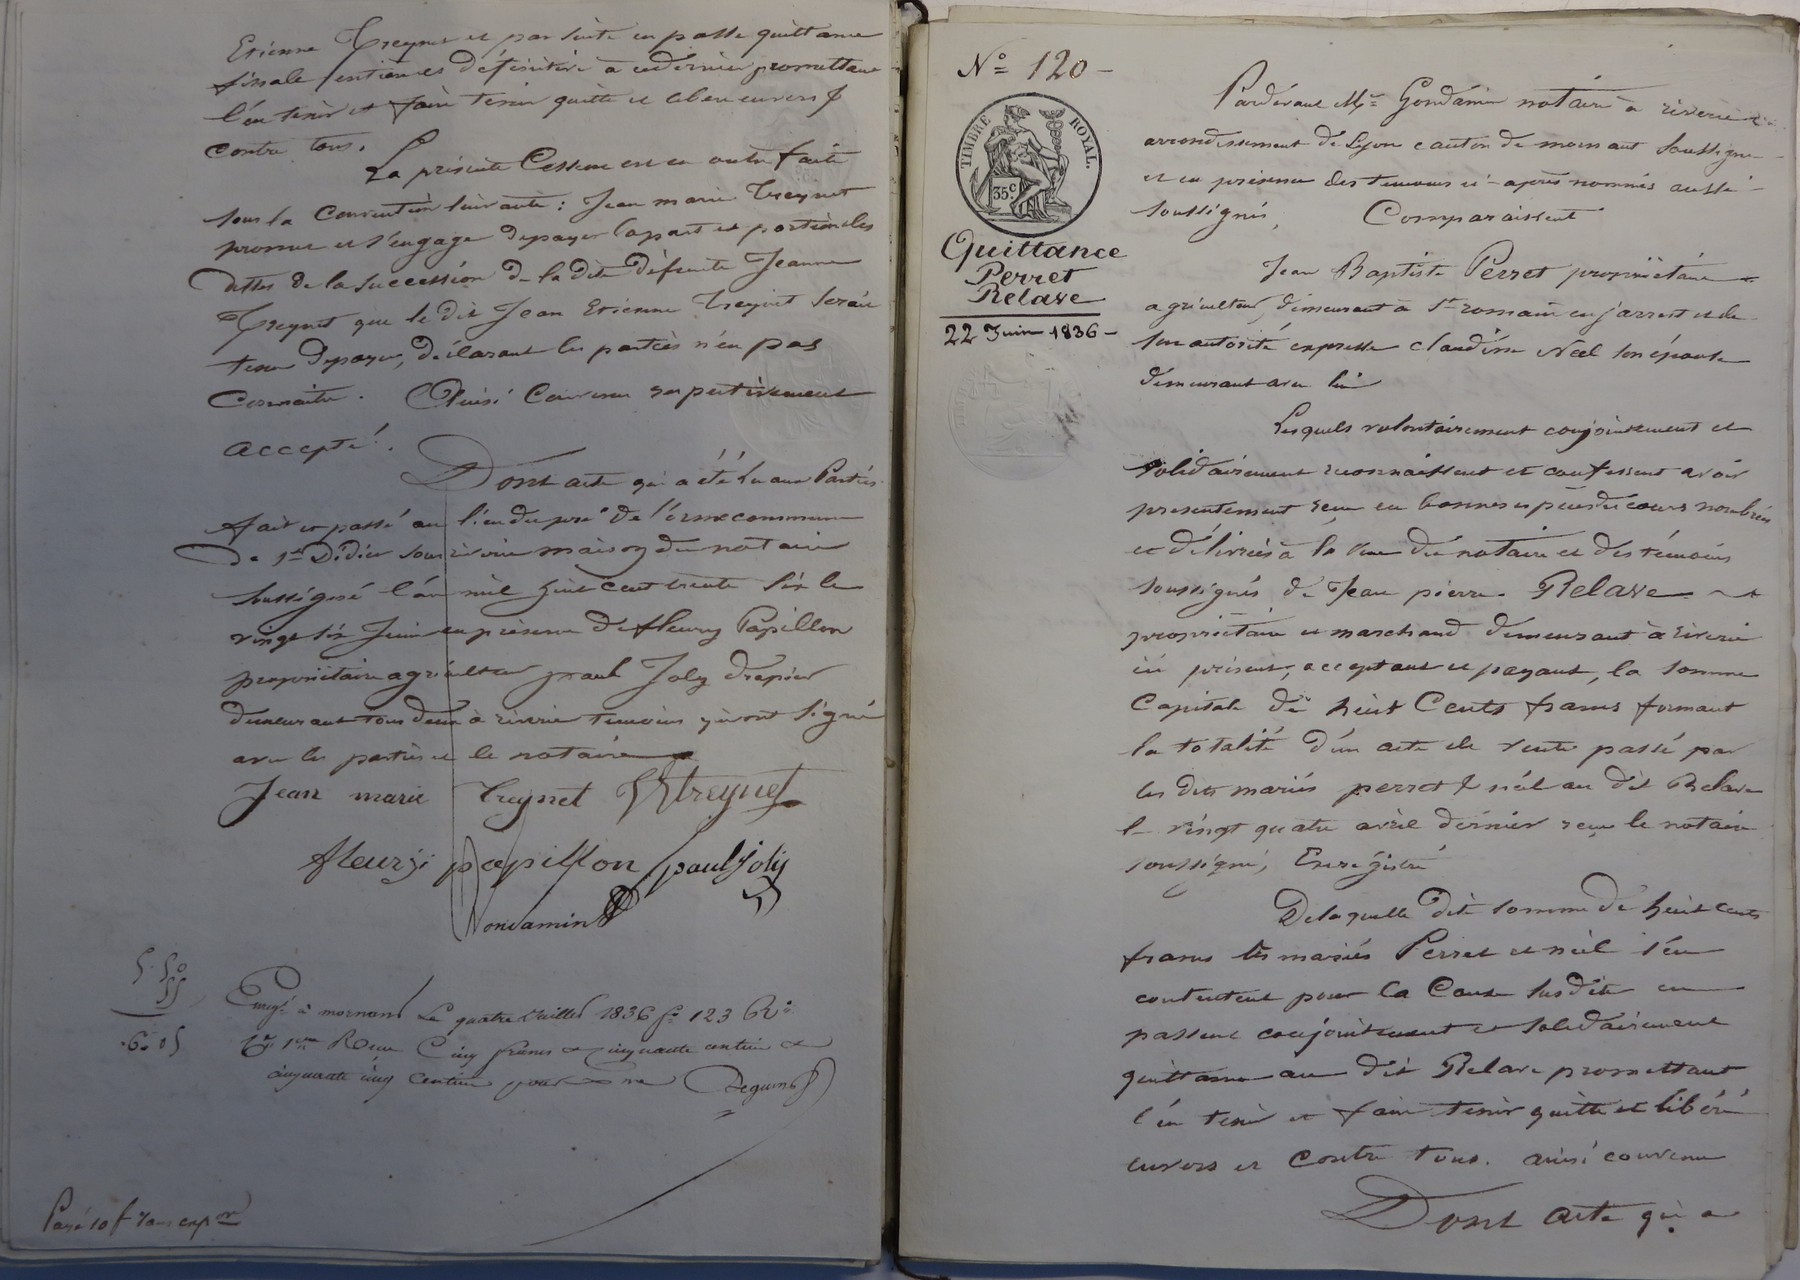 Etienne Treynet et par suite en passe quittance
finale entière et définitive à ce dernier promettant
l'en tenir et faire tenir quitte et libere envers &
contre tous.
La présente Cession est en outre faite
sous la Convention suivante : Jean marie Treynet
promet et s'engage de payer la part et portion des
dettes de la succession de la dite défunte Jeanne
Treynet que le dit Jean Etienne Treynet serait
tenu de payer, déclarant les parties n'en pas
Connaitre. Ainsi Convenu respectivement
accepté.
Dont acte qui a été lu aux Parties
fait et passé au lieu du pré de l'orme commune
De St Didier sous riverie maison du notaire
soussigné l'an mil huit cent trente six le
vingt six Juin en présence de fleury Papillon
propriétaire agriculteur paul Joly drapier
demeurant tous deux à riverie temoins qui ont signé
avec les parties et le notaire
Jean marie Treynet JEtreynet
fleury papillon paul joly
Gondamin
5. 50
55
6. 05
Enregé à mornant Le quatre Juillet 1836 fo 123 Ro
Cs 1re Recu Cinq francs cinquante centimes &
cinquante cinq centimes pour Xme Deguins
Nº 120
TIMBRE ROYAL.
35c
Quittance
Perret
Relave
22 Juin 1836
Pardevant Me Gondamin notaire à riverie
arrondissement de Lyon canton de mornant soussigné
et en présence des temoins ci-après nommés aussi
soussignés, Comparaissent
Jean Baptiste Perret propriétaire
agriculteur, demeurant à St romain en jarrest et de
son autorité expresse claudine Néel son épouse
demeurant avec lui
Lesquels volontairement conjointement et
solidairement reconnaissent et confessent avoir
presentement reçu en bonnes espèces du cours nombrées
et délivrées à la vue du notaire et des témoins
soussignés de Jean pierre Relave
propriétaire et marchand demeurant à riverie
ici présent, acceptant et payant, la somme
Capitale de huit Cents francs formant
la totalité d'un acte de vente passé par
les dits mariés perret & néel au dit Relave
le vingt quatre avril dernier reçu le notaire
soussigné, Enregistré
De laquelle dite somme de huit cents
francs les mariés Perret et néel s'en
contentent pour la Cause susdite en
passent conjointement et solidairement
quittance au dit Relave promettant
l'en tenir et faire tenir quitte et libéré
envers et contre tous. ainsi convenu
Dont acte qui a